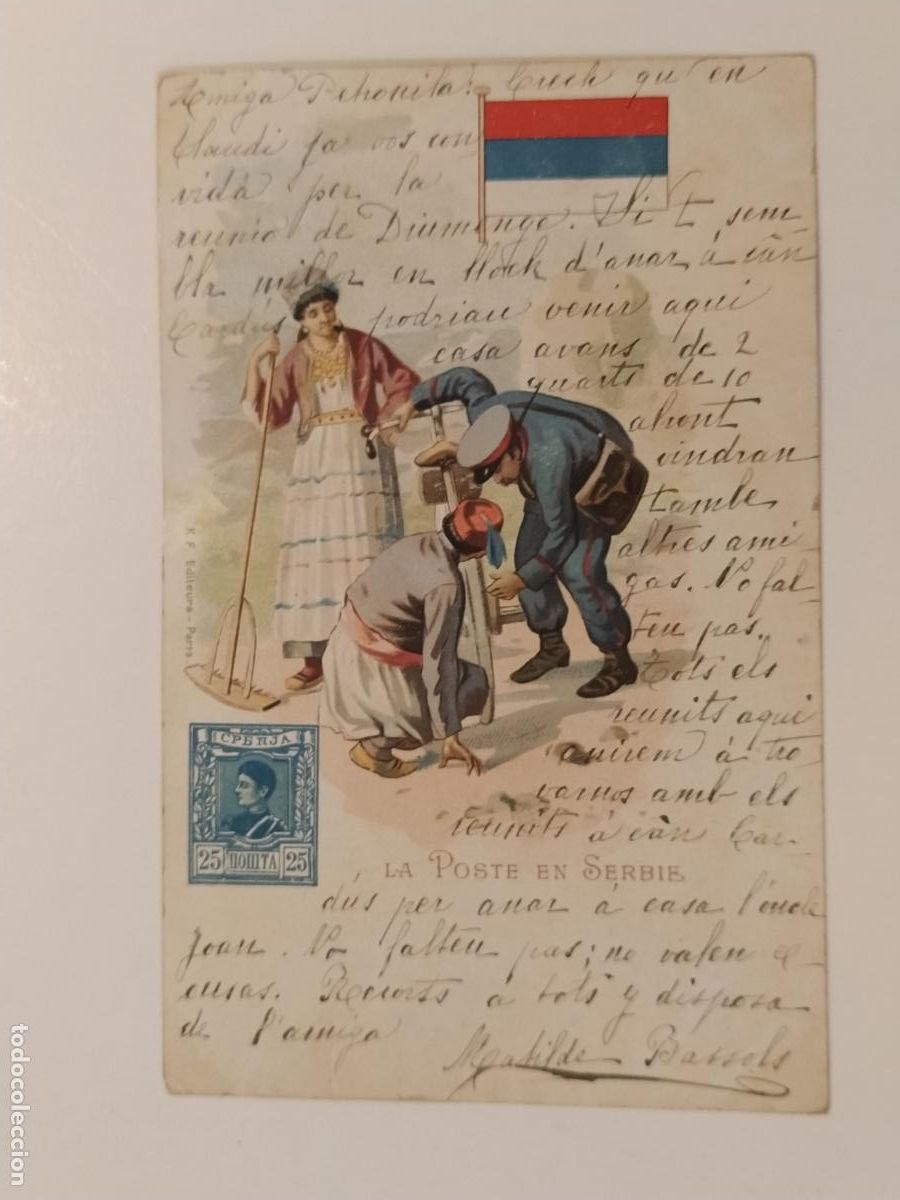 Amiga Petronila: Crech qu'en
Claudi ja vos con
vidá per la
reunió de Diumenge. Si t sem
bla millor en lloch d'anar á cán
Cardús podriau venir aqui
casa avans de 2
quarts de 10
ahont
vindran
tambe
altres ami
gas. No fal-
teu pas.
Tots els
reunits aqui
anirem á tro
varnos amb els
reunits á cán Car-
dús per anar á casa l'oncle
Joan. No falteu pas; no valen es-
cusas. Recorts á tots y disposa
de l'amiga
Matilde Bassols
K. F. Editeurs - Paris
СРБИЈА
25 ПОШТА 25
LA POSTE EN SERBIE
todocoleccion